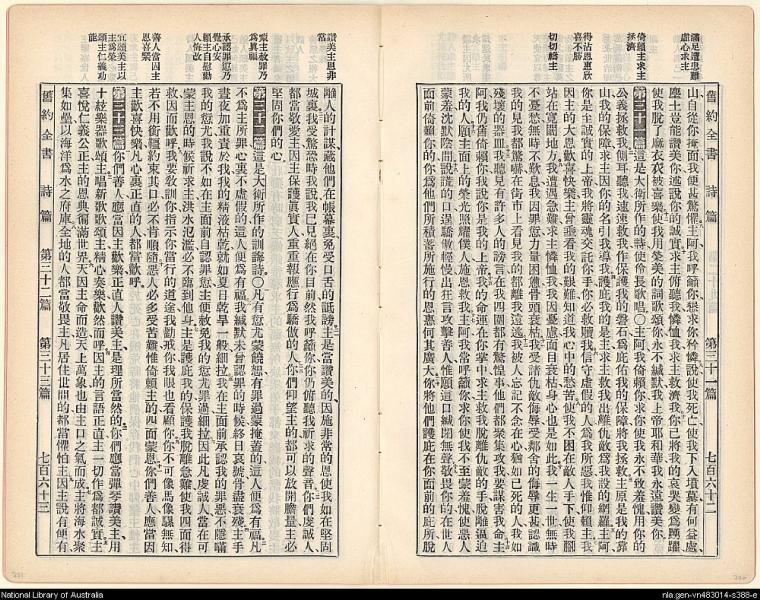 滿足遭患難
虛心求主
倚賴主求主
拯濟
得沾恩惠欣
喜不勝
切切禱主
舊約全書 詩篇 第三十一篇 七百六十二
山自從你掩面我便甚驚惶主阿我呼籲你懇求你矜憫說使我死亡使我下入墳墓有何益處
塵土豈能讚美你述說你的誠實求主俯聽我憐恤我求主救濟我你已將我的哀哭變為踴躍
使我脫了麻衣衣被喜樂使我用榮美的詞歌頌你永不緘默我上帝耶和華我永遠讚美你
第三十一篇 這是大衛所作的詩使伶長歌唱○主阿我倚賴你求你使我永不致羞愧用你的
公義拯救我側耳聽我速速救我作保護我的磐石為庇佑我的保障將我拯救主原是我的葬
山我的保障求主因你的名引我導我護庇我的是主求主救我出離仇敵為我設的網羅主阿
你是主誠實的上帝我將靈魂交託你手你必救贖我信守虛假的人為我所惡我惟仰賴主我
因主的大恩歡喜快樂主曾垂看我的艱難知道我心中的愁苦使我不困在敵人手下使我腳
站在寬闊地方我遭遇急難求主憐恤我我因憂慮面目衰枯身心也是如此我一生一世無時
不憂愁無時不歎息我因罪愆力量困憊骨頭衰枯我受諸仇敵侮辱受鄰舍的侮辱更甚認識
我的見我都驚嚇在街市上看見我的都離我逃避我被人忘記不念在心猶如已死的人我如
殘壞的器皿我聽見有許多人的謗言在我四圍都有驚惶事他們都聚集攻我要謀害我命主
阿我仍舊倚賴你我說你是我的上帝我的命運在你掌中求主救我脫離仇敵的手脫離逼迫
我的人願主面上的榮光照耀僕人施恩救我主阿我常呼籲你求你使我不至蒙羞愧使惡人
蒙羞沈默陰間說謊的口逞驕傲輕慢出狂言攻擊善人惟願這口緘閉無聲敬畏你的在世人
面前倚賴你的你為他們所積蓄所施行的恩惠何其廣大你將他們護庇在你面前的庇所脫
讚美主恩非
常
蒙主赦罪乃
為真福
承認罪愆乃
覺心安
願主自慰勸
人悔改
善人當因主
恩喜樂
宜頌美主以
主為榮
頌主仁義功
能
離人的計謀藏他們在帳幕裏免受口舌的詆謗主是當讚美的因施非常的恩使我如在堅固
城裏我受驚恐時我說我已見絕在你目前然我呼籲你你仍俯聽我祈求的聲音你們虔誠人
都當敬愛主因主保護真實人重重報應行為驕傲的人你們仰望主的都可以放開膽量主必
堅固你們的心
第三十二篇 這是大衛所作的訓誨詩○凡有愆尤蒙饒恕有罪過蒙掩蓋的這人便為有福凡
不為主所罪心裏不虛假的這人便為有福我緘默未曾認罪的時候終日哀號骨盡衰殘主手
晝夜加重責於我我的精液枯乾就如夏日乾旱一般細拉我在主面前承認我的罪惡不隱瞞
我的愆尤我說不如在主面前自認罪愆主便赦免我的愆尤罪過細拉因此凡虔誠人當在可
蒙主恩的時候祈求主洪水氾濫必不臨到他身上主是護庇我的保護我脫離急難使我四面得
救因而歡呼我要教訓你指示你當行的道途我勸戒你我眼也看顧你你不可像馬像騾無知
若不用銜韁約束其口必不肯順隨惡人必多受苦難惟倚賴主的四面蒙恩你們善人應當因
主歡喜快樂凡心裏正直的人都當歡呼
第三十三篇 你們善人應當因主歡樂正直人讚美主是理所當然的你們應當彈琴讚美主用
十絃樂器歌頌主唱新歌歌頌主精心奏樂歡然而呼因主的言語正直主一切作為都誠實主
喜悅仁義公正主的恩典徧滿世界天因主命而造天上萬象也由主口之氣而成主將海水聚
集如壘以海洋為水之府庫全地的人都當敬畏主凡居住世間的都當懼怕主因主說有便有
舊約全書 詩篇 第三十二篇 第三十三篇 七百六十三
National Library of Australia
nla.gen-vn483014-s388-e